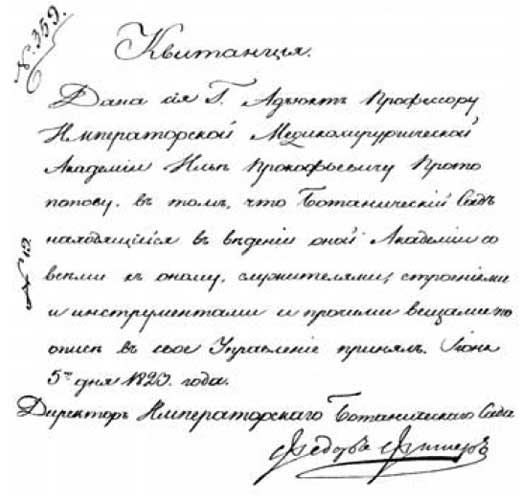 № 359.
Квитанція.
Дана сія Г. Адъюктъ Профессору
Императорской Медикохирургической
Академіи Ильѣ Прокофьевичу Прото
попову, въ томъ, что Ботаническій Садъ
находящійся въ вѣденіи оной Академіи со
всѣми къ оному, служителями, строеніями
и инструментами и прочими вещами по
описи въ свое Управленіе принялъ. Іюня
5го дня 1823. года.
Директоръ Императорскаго Ботаническаго Сада
Федоръ Фишеръ